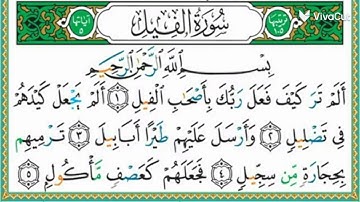 ترتيبها ١٠٥ سُورَةُ الفِيلِ آياتها ٥
VivaCut
بِسْمِ اللَّهِ الرَّحْمَٰنِ الرَّحِيمِ
أَلَمْ تَرَ كَيْفَ فَعَلَ رَبُّكَ بِأَصْحَٰبِ الْفِيلِ ١ أَلَمْ يَجْعَلْ كَيْدَهُمْ
فِي تَضْلِيلٍ ٢ وَأَرْسَلَ عَلَيْهِمْ طَيْرًا أَبَابِيلَ ٣ تَرْمِيهِم
بِحِجَارَةٍ مِّن سِجِّيلٍ ٤ فَجَعَلَهُمْ كَعَصْفٍ مَّأْكُولٍ ٥